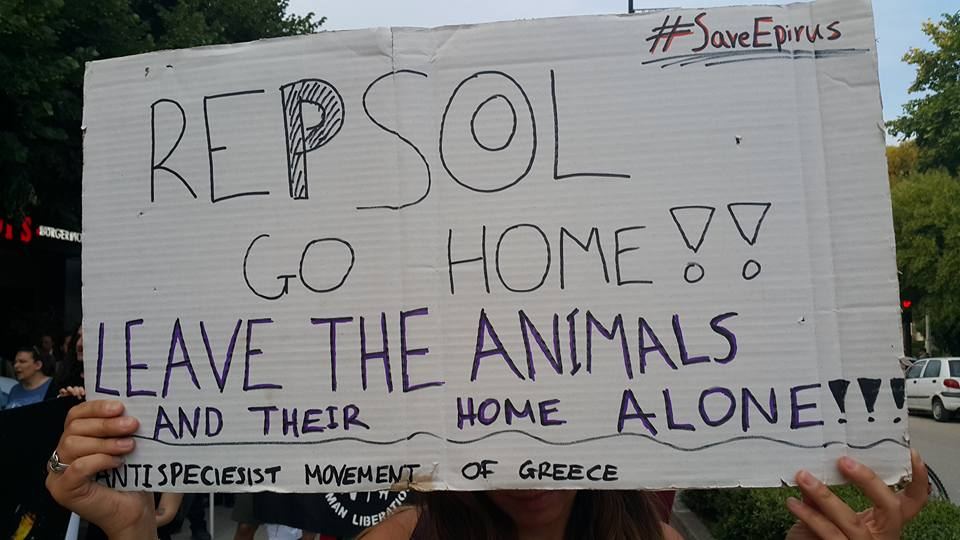 #SaveEpirus
REPSOL
GO HOME!!
LEAVE THE ANIMALS
AND THEIR HOME ALONE!!!
ANTISPECIESIST MOVEMENT OF GREECE